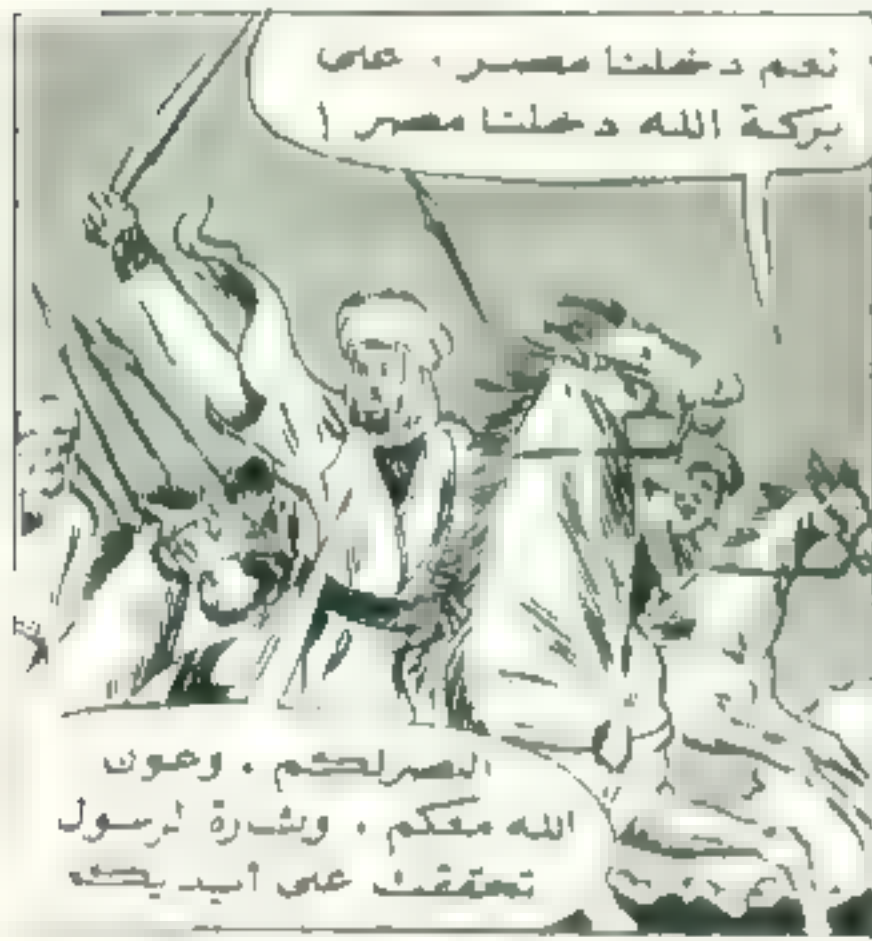 نعم دخلنا مصر . على
بركة الله دخلنا مصر !
النصر لكم . وعون
الله معكم . وبشارة الرسول
تحققت على أيديكم